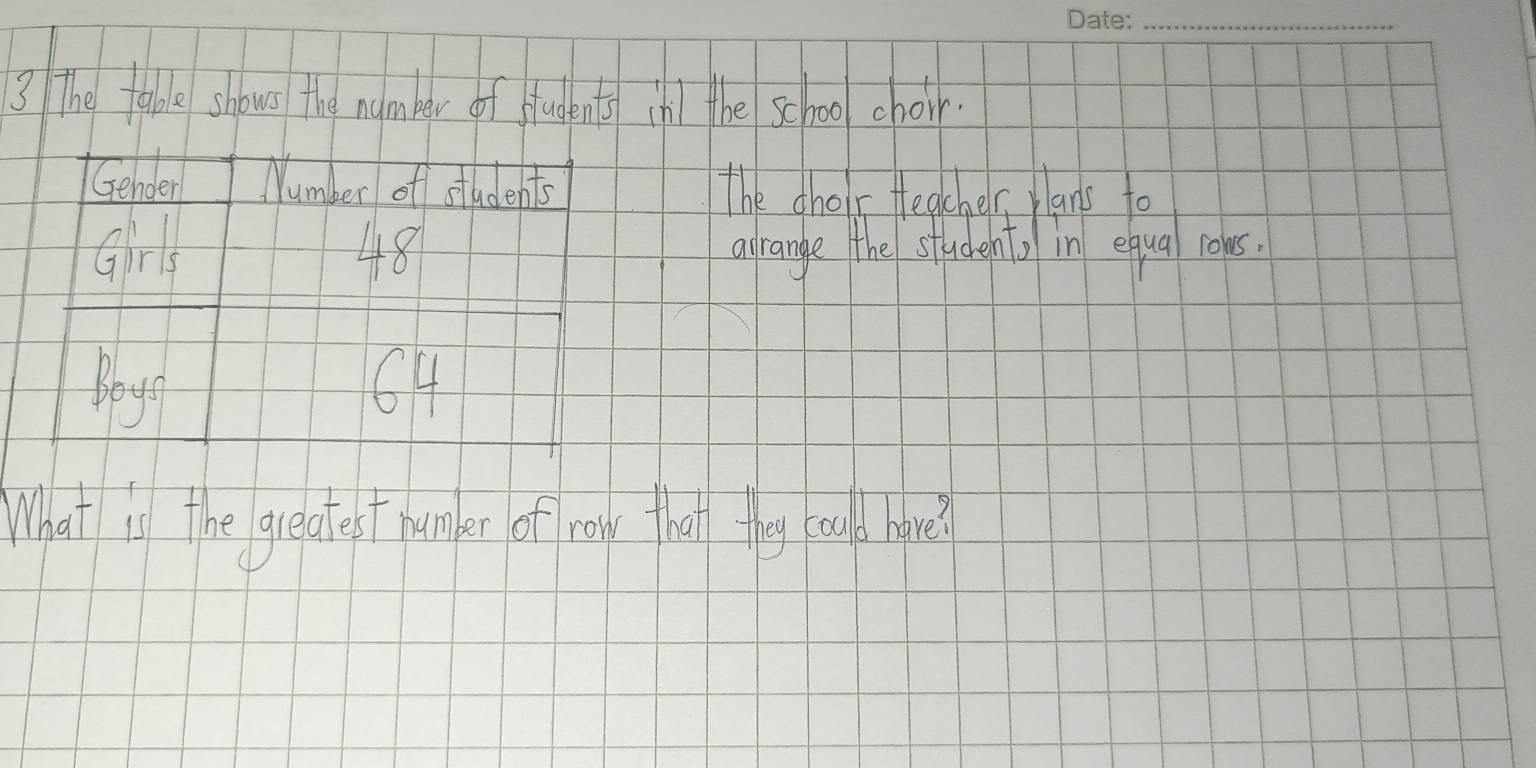 Date:
3 The table shows the number of students in the school choir.
Gender Number of students
Girls 48
Boys 64
The choir teacher plans to
arrange the students in equal rows.
What is the greatest number of row that they could have?